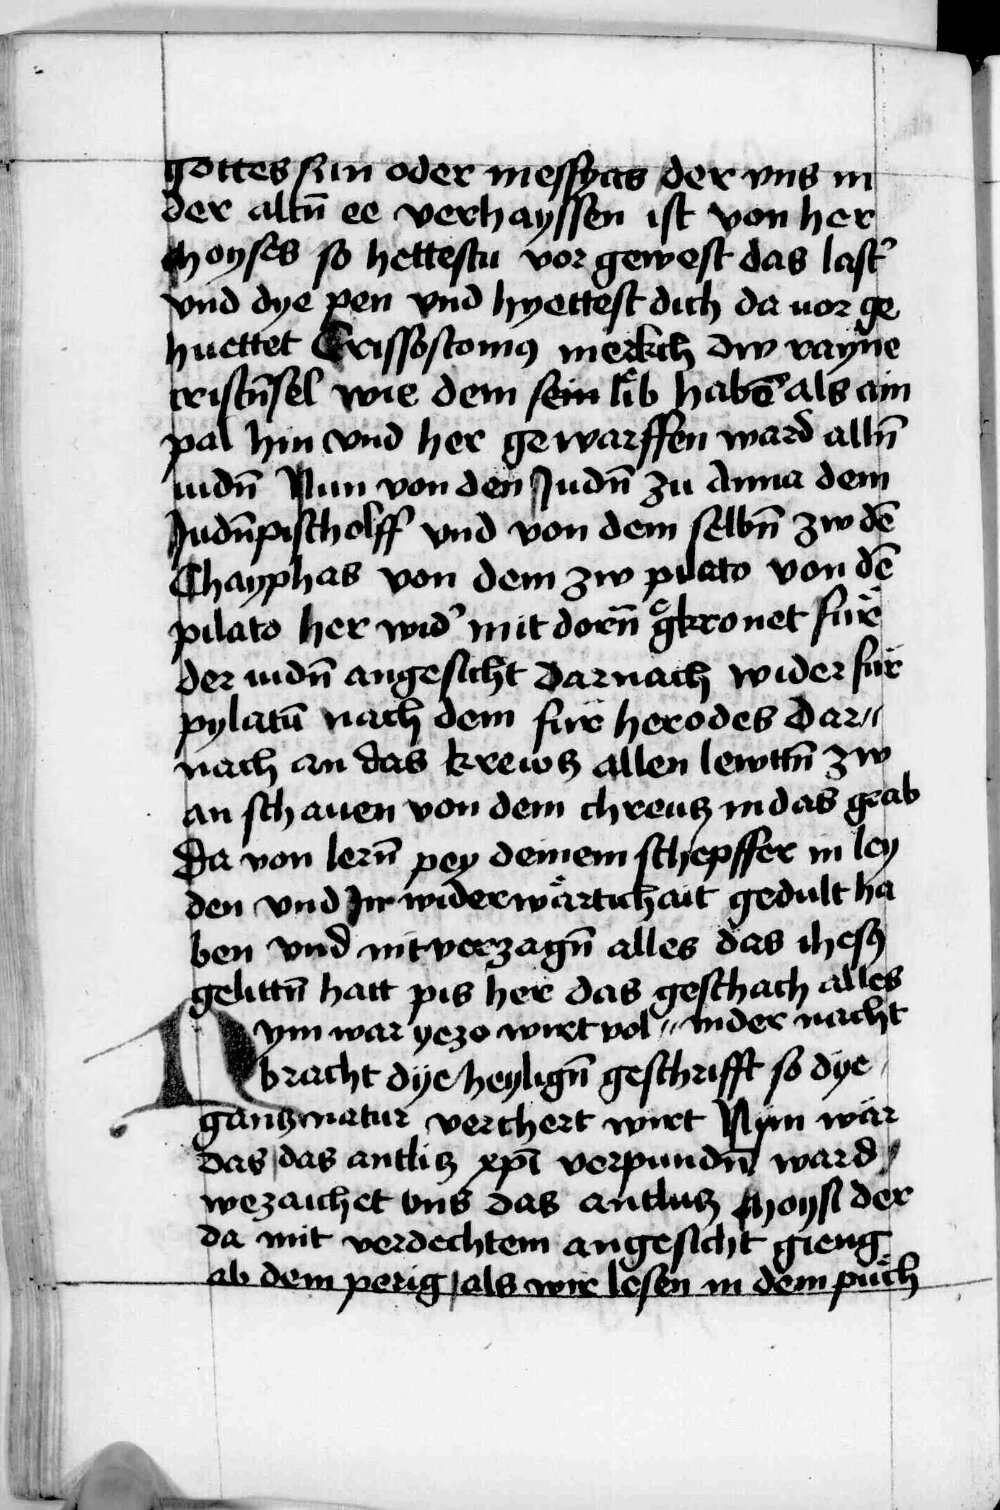 gottes sun oder messyas der vns in
der altn̄ ee verhayssen ist von her
Moyses so hettestu vor gewest das last'
vnd dye pen vnd hyettest dich da uor ge
huettet Crissostomꝰ merkch dw rayne
cristn̄sel wie dem sein lib habē als ain
pal hin vnd her gewarffen ward alln̄
iudn̄ Nun von den Judn̄ zu Anna dem
Judn̄pischolff vnd von dem selbn̄ zw dē
Chayphas von dem zw pilato von dē
pilato her wid' mit dorn̄ gͤkronet fur
der iudn̄ angesicht Darnach wider fur
pylatū nach dem fur herodes Dar〃
nach an das krewtz allen lewttn̄ zw
an schauen von dem chreutz in das grab
Da von lern̄ pey deinem schepffer in ley
den vnd Jn widerwaͤrtichait gedult ha
ben vnd nit verzagn̄ alles das ihesꝰ
gelittn̄ hatt pis her das geschach alles
Nym war yezo wirt vol〃 in der nacht
bracht dye heylign̄ geschrifft so dye
gantz natur verchert wirt Nym war
das das antlitz xp̄i verpundn̄ ward
wezaichet vns das antlutz Moysi der
da mit verdechtem angesicht gieng
ab dem perig als wir lesen in dem puͤch